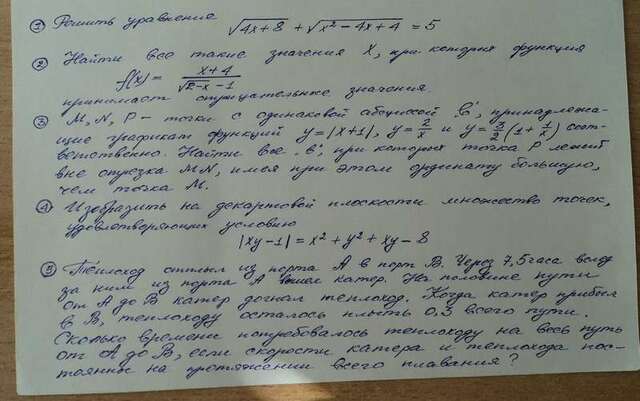 ① Решить уравнение √(4x+8) + √(x² − 4x + 4) = 5
② Найти все такие значения X, при которых функция
f(x) = (x+4)/(√(2−x) − 1)
принимает отрицательные значения
③ M, N, P – точки с одинаковой абсциссой "в", принадлежа-
щие графикам функций y = |x+1|, y = 2/x и y = 3/2(1 + 1/x) соот-
ветственно. Найти все "в", при которых точка P лежит
вне отрезка MN, имея при этом ординату большую,
чем точка M.
④ Изобразить на декартовой плоскости множество точек,
удовлетворяющих условию
|xy−1| = x² + y² + xy − 8
⑤ Теплоход отплыл из порта A в порт B. Через 7,5 часа вслед
за ним из порта A катер. На половине пути
от A до B катер догнал теплоход. Когда катер прибыл
в B, теплоходу осталось плыть 0,3 всего пути.
Сколько времени потребовалось теплоходу на весь путь
от A до B, если скорости катера и теплохода пос-
тоянные на протяжении всего плавания?